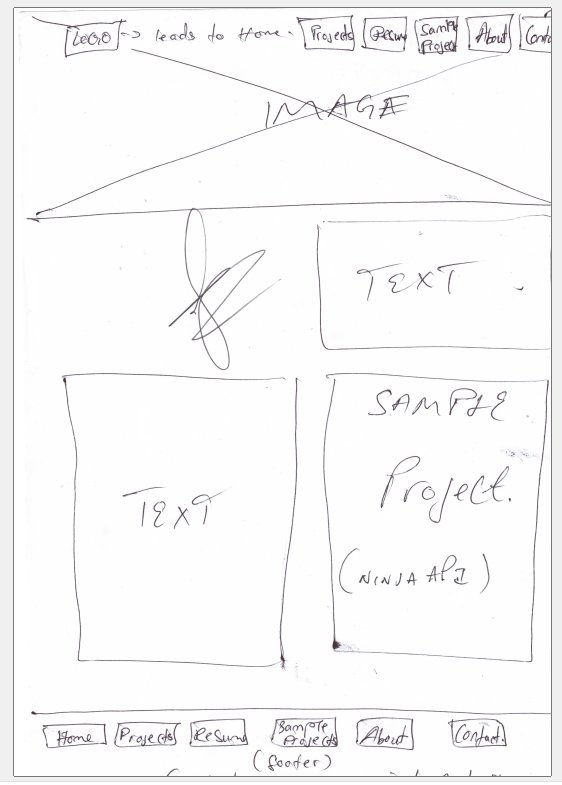 LOGO -> leads to Home. Projects Resum Sample Project About Conta
IMAGE
TEXT
TEXT
SAMPLE
Project.
(NINJA API)
Home Projects Resume Sample Projects About Contact.
(footer)